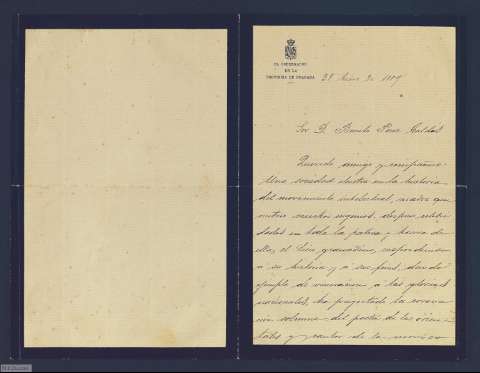 EL GOBERNADOR
DE LA
PROVINCIA DE GRANADA
28 Enero de 1889
Sor D. Benito Perez Galdós
Querido amigo y compañero:
Una sociedad ilustre en la historia
del movimiento intelectual,
nuestros ingenios, despues celebri-
dades en toda la patria y fuera de
ella, el Liceo granadino, respondiendo
á su historia y á sus fines, dando
ejemplo de veneracion á las glorias
nacionales, ha proyectado la corona-
cion solemne del poeta de las orien-
tales y cantor de la morisca